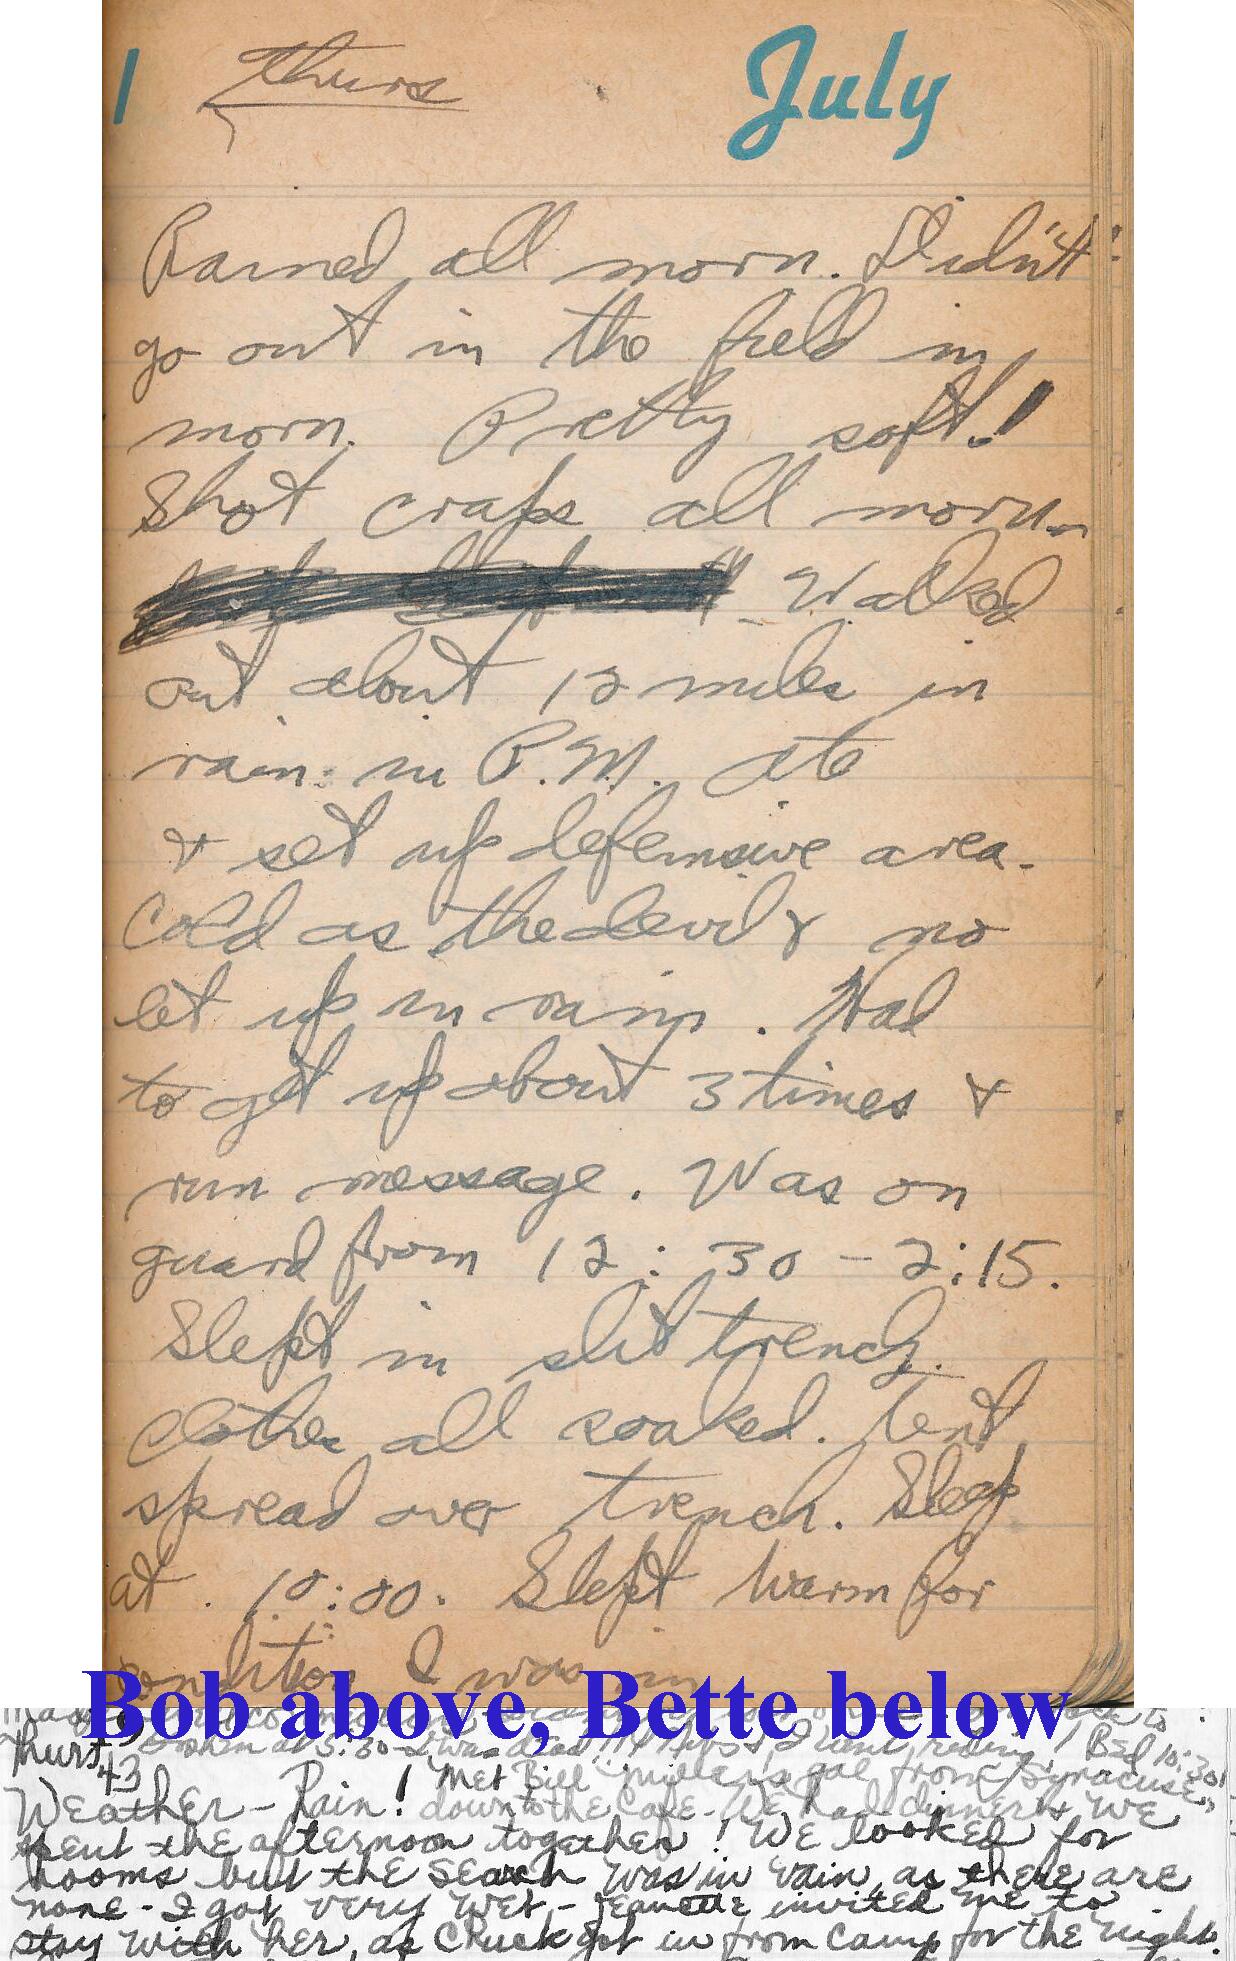 1 Thurs July
Rained all morn. Didn't
go out in the field in
morn. Pretty soft!
Shot craps all morn.
Walked
out about 12 miles in
rain in P.M. Ate
& set up defensive area.
Cold as the devil & no
let up in rain. Had
to get up about 3 times &
run message. Was on
guard from 12:30 - 2:15.
Slept in slit trench.
Clothes all soaked. Tent
spread over trench. Sleep
at 10:00. Slept warm for
condition I was in
Bob above, Bette below
Thurs at 5:30 - I was dead!! Bed 10:30!
43 Met Bill Miller's gal from Syracuse,
Weather - Rain! down to the Cafe - We had dinner & We
spent the afternoon together! We looked for
rooms but the search was in vain, as there are
none - I got very wet - Jeanette invited me to
stay with her, as Chuck got in from camp for the night.